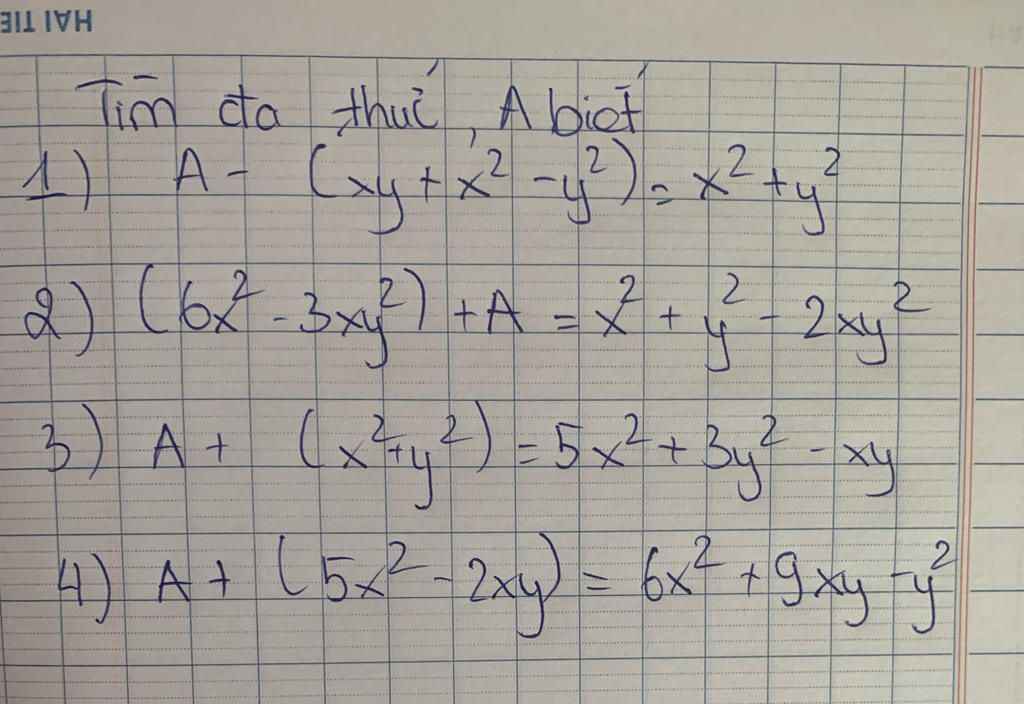 HẢI TIẾ
Tìm đa thức, A biết
1) A - (xy + x² - y²) = x² + y²
2) (6x² - 3xy²) + A = x² + y² - 2xy²
3) A + (x² + y²) = 5x² + 3y² - xy
4) A + (5x² - 2xy) = 6x² + 9xy - y²